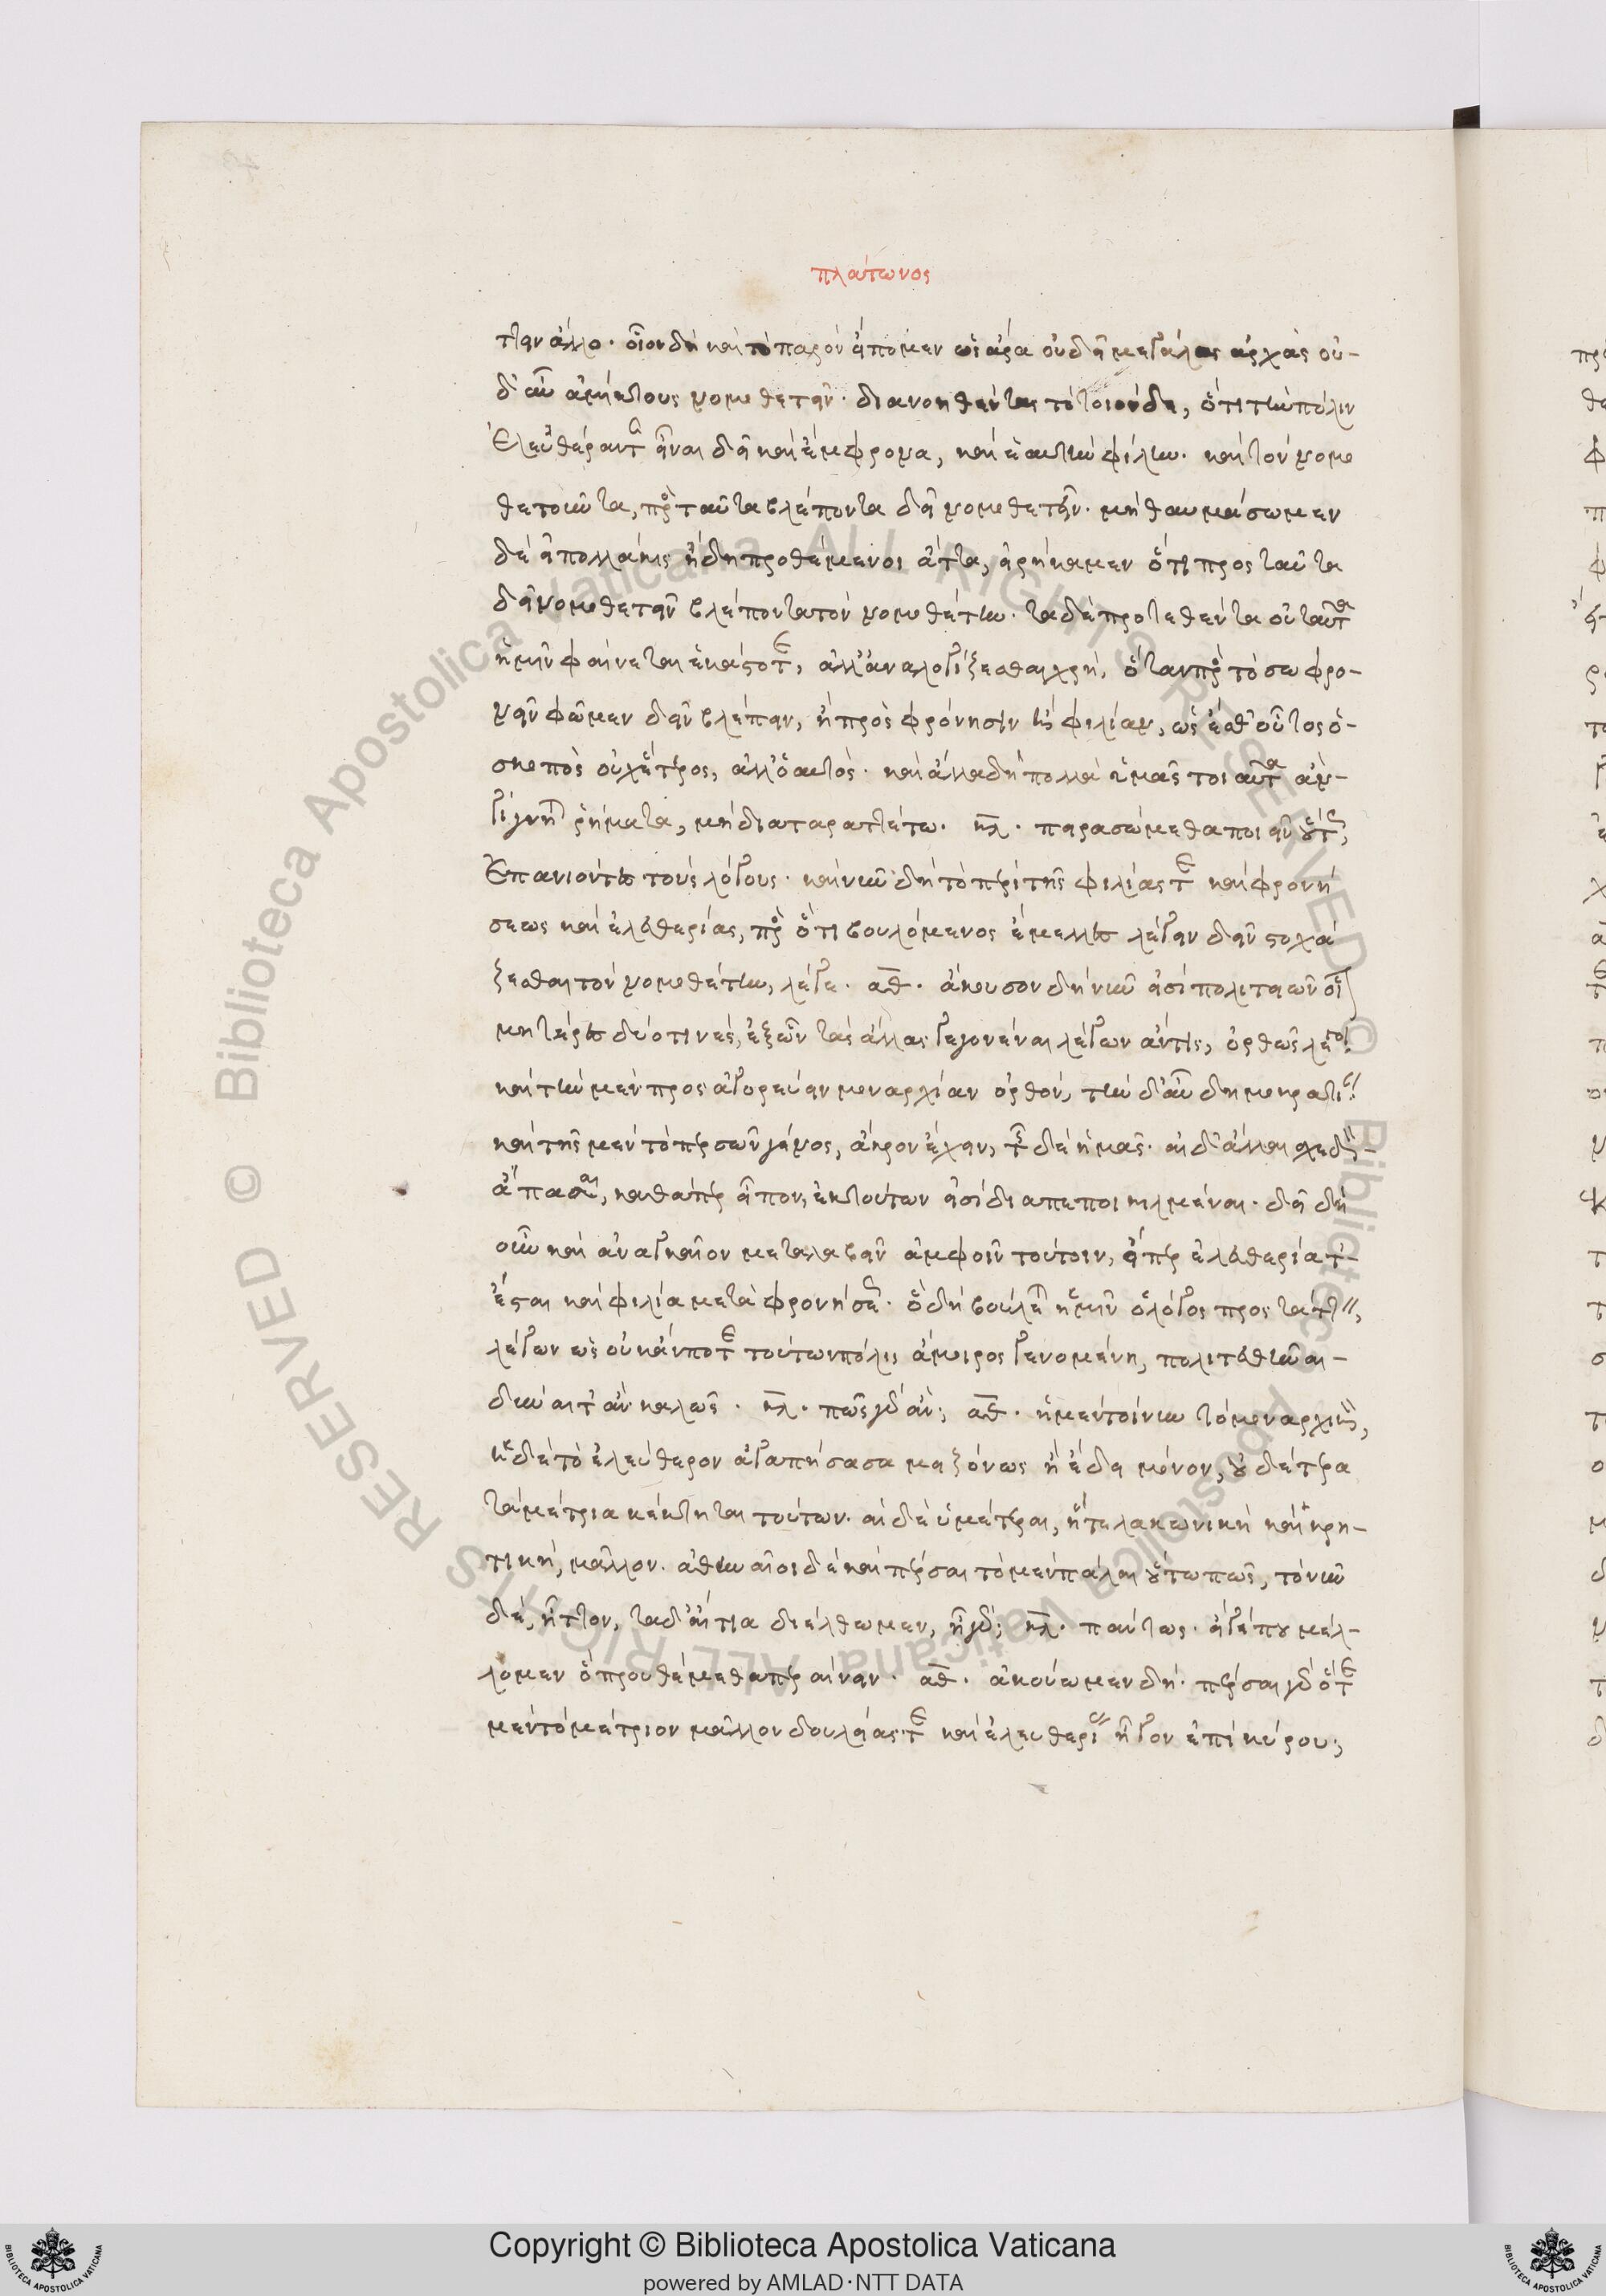 πλάτωνος
τειν ἄλλο. οἷον δὴ καὶ τὸ παρὸν εἴπομεν ὡς ἄρα οὐ δεῖ μεγάλας ἀρχὰς οὐ-
δ' αὖ ἀμίκτους νομοθετεῖν. διανοηθέντας τὸ τοιόνδε, ὅτι τὴν πόλιν
ἐλευθέραν τε εἶναι δεῖ καὶ ἔμφρονα, καὶ ἑαυτῇ φίλην. καὶ τὸν νομο
θετοῦντα, πρὸς ταῦτα βλέποντα δεῖ νομοθετεῖν. μὴ θαυμάσωμεν
δὲ εἰ πολλάκις ἤδη προθέμενοι ἄττα, εἰρήκαμεν ὅτι πρὸς ταῦτα
δεῖ νομοθετεῖν βλέποντα τὸν νομοθέτην. τὰ δὲ προτεθέντα οὐ ταὐτὰ
ἡμῖν φαίνεται ἑκάστοτε, ἀλλ' ἀναλογίζεσθαι χρή, ὅταν πρὸς τὸ σωφρο-
νεῖν φῶμεν δεῖν βλέπειν, ἢ πρὸς φρόνησιν ἢ φιλίαν, ὡς ἔσθ' οὗτος ὁ-
σκοπὸς οὐχ ἕτερος, ἀλλ' ὁ αὐτός. καὶ ἄλλα δὴ πολλὰ ἡμᾶς τοιαῦτα ἂν-
γίγνηται ῥήματα, μὴ διαταραττέτω. κλ. πειρασώμεθα ποιεῖν οὕτως,
ἐπανιόντες τοὺς λόγους. καὶ νῦν δὴ τὸ περὶ τῆς φιλίας τε καὶ φρονή
σεως καὶ ἐλευθερίας, πρὸς ὅτι βουλόμενος ἔμελλες λέγειν δεῖν στοχά
ζεσθαι τὸν νομοθέτην, λέγε. αθ. ἄκουσον δὴ νῦν εἰσὶ πολιτειῶν οἷον
μητέρες δύο τινές, ἐξ ὧν τὰς ἄλλας γεγονέναι λέγων ἄν τις, ὀρθῶς λέγοι.
καὶ τὴν μὲν προσαγορεύειν μοναρχίαν ὀρθόν, τὴν δ' αὖ δημοκρατίαν.
καὶ τῆς μὲν τὸ περσῶν γένος, ἄκρον ἔχειν, τῆς δὲ ἡμᾶς. αἱ δ' ἄλλαι σχεδὸν-
ἅπασαι, καθάπερ εἶπον, ἐκ τούτων εἰσὶ διαπεποικιλμέναι. δεῖ δὴ
οὖν καὶ ἀναγκαῖον μεταλαβεῖν ἀμφοῖν τούτοιν, εἴπερ ἐλευθερία τ'-
ἔσται καὶ φιλία μετὰ φρονήσεως. ὃ δὴ βούλεται ἡμῖν ὁ λόγος προστάττειν,
λέγων ὡς οὐκ ἄν ποτε τούτων πόλις ἄμοιρος γενομένη, πολιτευθῆναι-
δύναιτ' ἂν καλῶς. κλ. πῶς γὰρ ἄν; αθ. ἡ μὲν τοίνυν τὸ μοναρχικόν,
ἡ δὲ τὸ ἐλεύθερον ἀγαπήσασα μειζόνως ἢ ἔδει μόνον, οὐδετέρα
τὰ μέτρια κέκτηται τούτων. αἱ δὲ ὑμέτεραι, ἥ τε λακωνικὴ καὶ κρη-
τική, μᾶλλον. ἀθηναῖοι δὲ καὶ πέρσαι τὸ μὲν πάλαι οὕτω πως, τὸ νῦν
δέ, ἧττον, τὰ δ' αἴτια διέλθωμεν, ἦ γάρ; κλ. πάντως. εἴ γέ που μέλ-
λομεν ὃ προυθέμεθα περαίνειν. αθ. ἀκούωμεν δή. πέρσαι γὰρ ὅτε
μὲν τὸ μέτριον μᾶλλον δουλείας τε καὶ ἐλευθερίας ἦγον ἐπὶ κύρου,
Copyright © Biblioteca Apostolica Vaticana
powered by AMLAD·NTT DATA